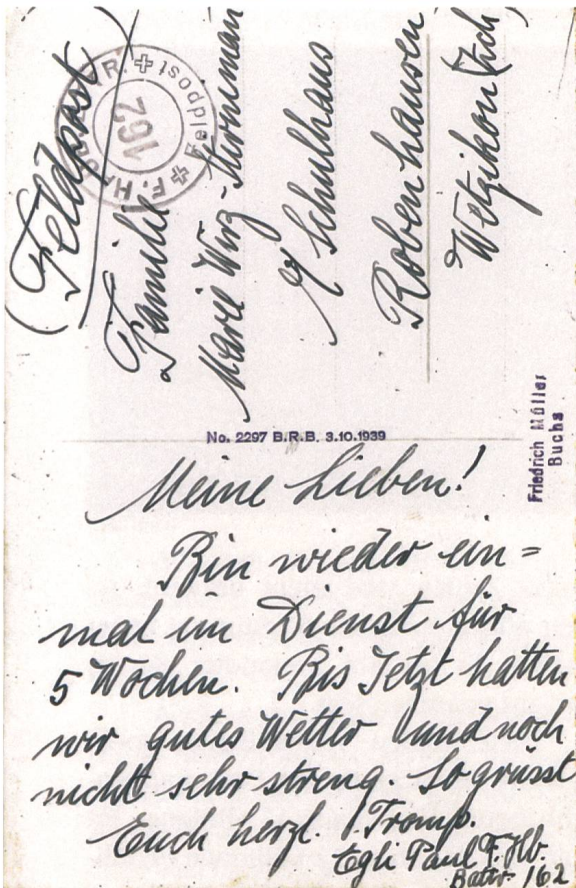 (Feldpost)
F. HAUB. BTTR. ✚ Feldpost ✚
162
Familie
Karl Wirz-
Schulhaus
Robenhausen
Wetzikon (Zch)
No. 2297 B.R.B. 3.10.1939
Friedrich Müller
Buchs
Meine Lieben!
Bin wieder ein=
mal im Dienst für
5 Wochen. Bis Jetzt hatten
wir gutes Wetter und noch
nicht sehr streng. So grüsst
Euch herzl. Tromp.
Egli Paul F. Hb.
Battr. 162